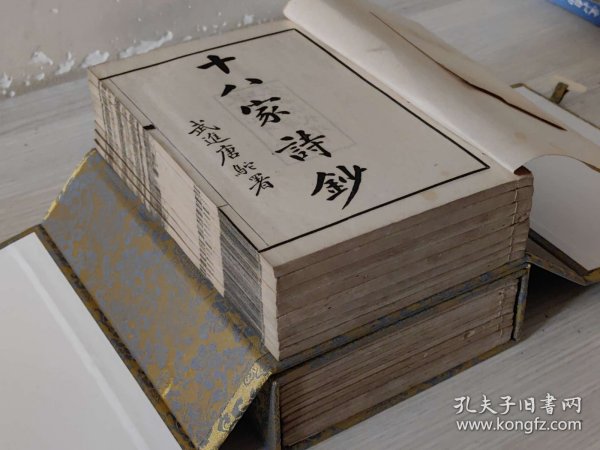 十八家詩鈔
武進唐駝署
孔夫子旧書网
www.kongfz.com